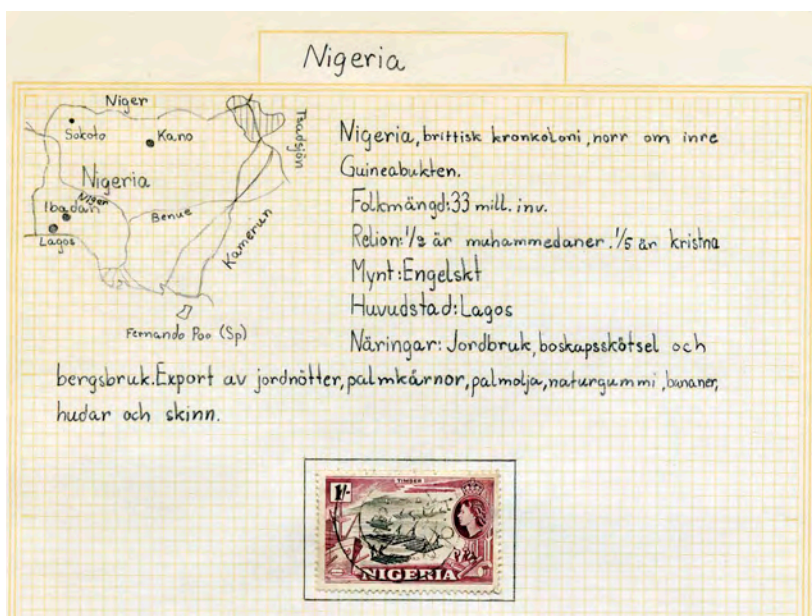 Nigeria
Niger
Sokoto
Kano
Tsadsjön
Nigeria
Niger
Ibadan
Benue
Lagos
Kamerun
Fernando Poo (Sp)
Nigeria, brittisk kronkoloni, norr om inre
Guineabukten.
Folkmängd: 33 mill. inv.
Relion: 1/2 är muhammedaner. 1/5 är kristna
Mynt: Engelskt
Huvudstad: Lagos
Näringar: Jordbruk, boskapsskötsel och
bergsbruk. Export av jordnötter, palmkärnor, palmolja, naturgummi, bananer,
hudar och skinn.
TIMBER
1/-
NIGERIA